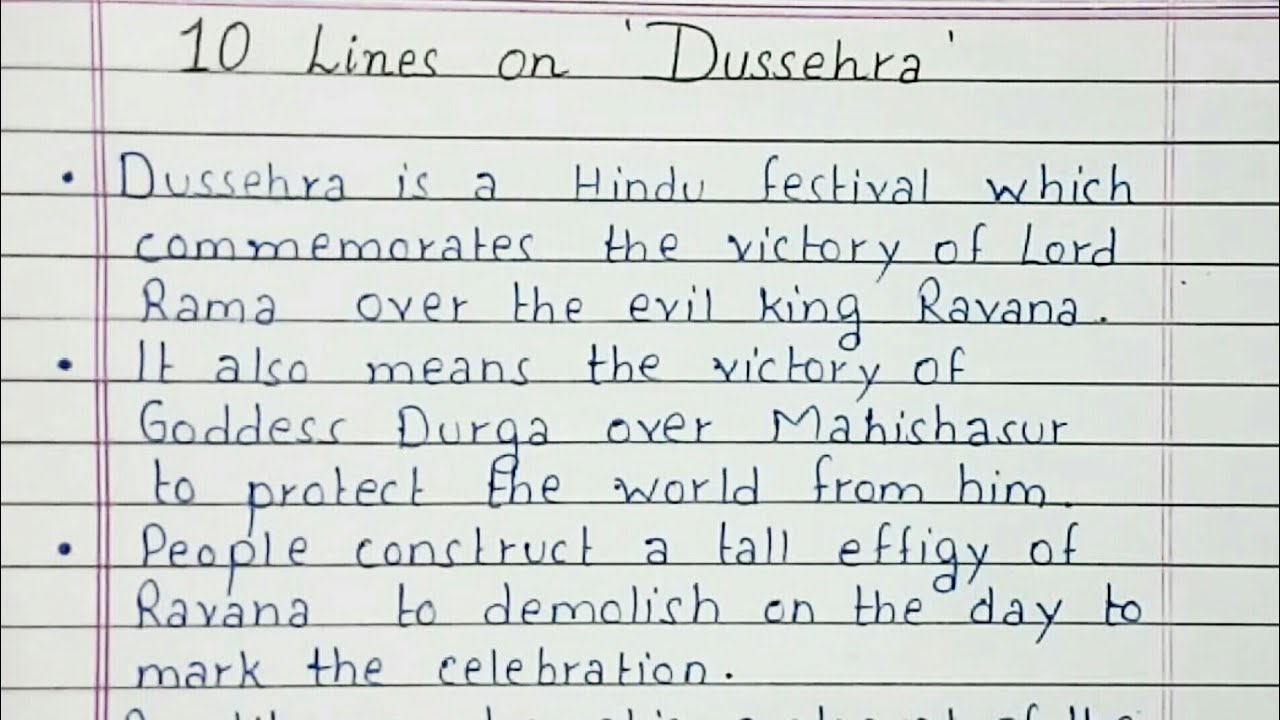 10 Lines on 'Dussehra'
• Dussehra is a Hindu festival which
commemorates the victory of Lord
Rama over the evil king Ravana.
• It also means the victory of
Goddess Durga over Mahishasur
to protect the world from him.
• People construct a tall effigy of
Ravana to demolish on the day to
mark the celebration.